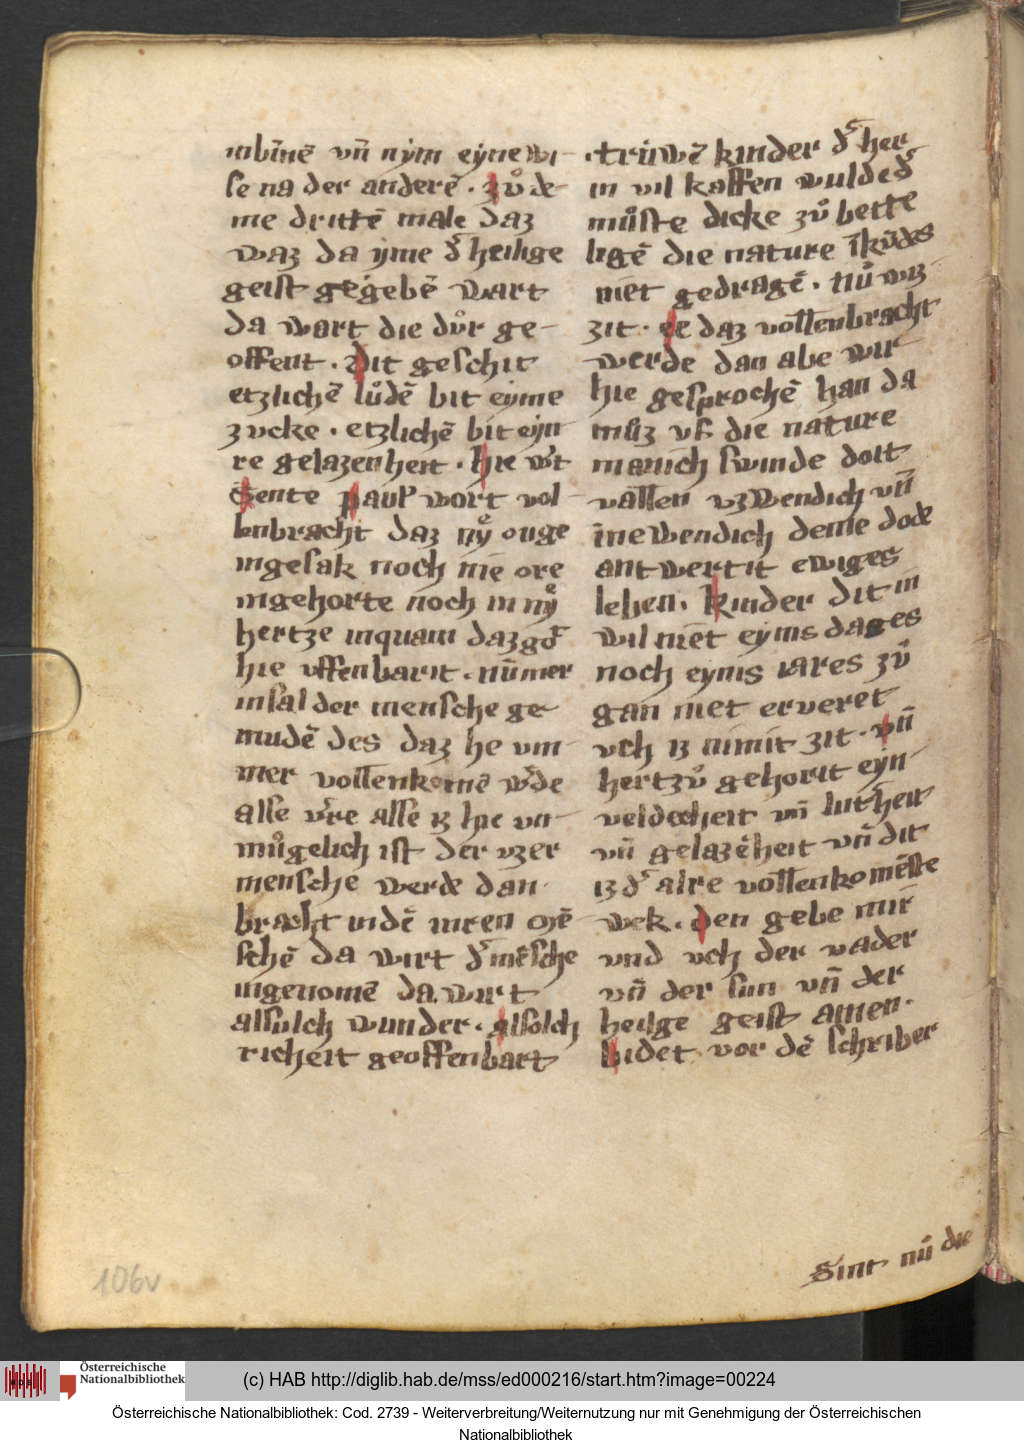 inbīnē vn̄ nẏm eẏne wi-
se na der anderē . zuͦ de-
me drittē male daz
waz da ẏme dˢ heilige
geist gegebē wart
da wart die duͦr ge-
offent . dit geschit
etzlichē luͦdē bit eẏme
zvcke . etzlichē bit eẏn-
re gelazenheit . hie wˢt
Sente paulˢ wort vol-
lenbracht daz nẏͤ ouge
ingesak noch nie ore
ingehorte noch in nẏͤ
hertze inquam daz got
hie vffenbarit . nūmer
insal der mensche ge-
mudē des daz he vm-
mer vollenkomē wˢde
alse vˢre alse iz hie vn-
muͦgelich ist der vzer
mensche werde dan
bracht indē inren mē
schē da wirt dˢ mēsche
ingenomē da wirt
alsulch wunder . alsolch
richeit geoffenbart
. trūwē kinder dˢ her
in vil kaffen wulde dˢ
muͦste dicke zuͦ bette
ligē die nature īkūdes
niet gedragē . nuͦ wiz-
zit . ee daz vollenbracht
werde dan abe wir
hie gesprochē han da
muͦz vf die nature
manich swinde doit
vallen vzwendich vn̄
inewendich deme dode
antwertit ewiges
leben . kinder dit in
wil niet eẏnis dages
noch eynis iares zuͦ
gan niet erveret
vch iz nimit zit . vn̄
hertzuͦ gehorit eẏn-
veldecheit vn̄ lutˢheit
vn̄ gelazēheit vn̄ dit
iz dˢ alre vollenkomēste
wek . den gebe mir
vnd vch der vader
vn̄ der sun vn̄ der
heilge geist amen .
bidet vor dē schriber
Sint nuͦ die
106v
Österreichische
Nationalbibliothek
(c) HAB http://diglib.hab.de/mss/ed000216/start.htm?image=00224
Österreichische Nationalbibliothek: Cod. 2739 - Weiterverbreitung/Weiternutzung nur mit Genehmigung der Österreichischen
Nationalbibliothek